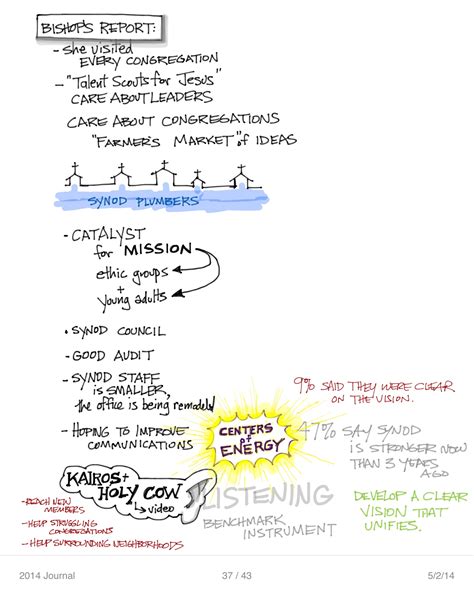 BISHOP'S REPORT:
- she visited
EVERY CONGREGATION
- "Talent Scouts for Jesus"
CARE ABOUT LEADERS
CARE ABOUT CONGREGATIONS
"FARMER'S MARKET" of IDEAS
SYNOD PLUMBERS
- CATALYST
for MISSION
ethic groups
+
young adults
• SYNOD COUNCIL
- GOOD AUDIT
- SYNOD STAFF
IS SMALLER,
the office is being remodeled
- HOPING TO IMPROVE
COMMUNICATIONS
CENTERS
of
ENERGY
9% SAID THEY WERE CLEAR
ON THE VISION.
47% SAY SYNOD
IS STRONGER NOW
THAN 3 YEARS
AGO
KAIROS +
HOLY COW
↳ video
LISTENING
BENCHMARK
INSTRUMENT
DEVELOP A CLEAR
VISION THAT
UNIFIES.
- REACH NEW
MEMBERS
- HELP STRUGGLING
CONGREGATIONS
- HELP SURROUNDING NEIGHBORHOODS
2014 Journal
37 / 43
5/2/14